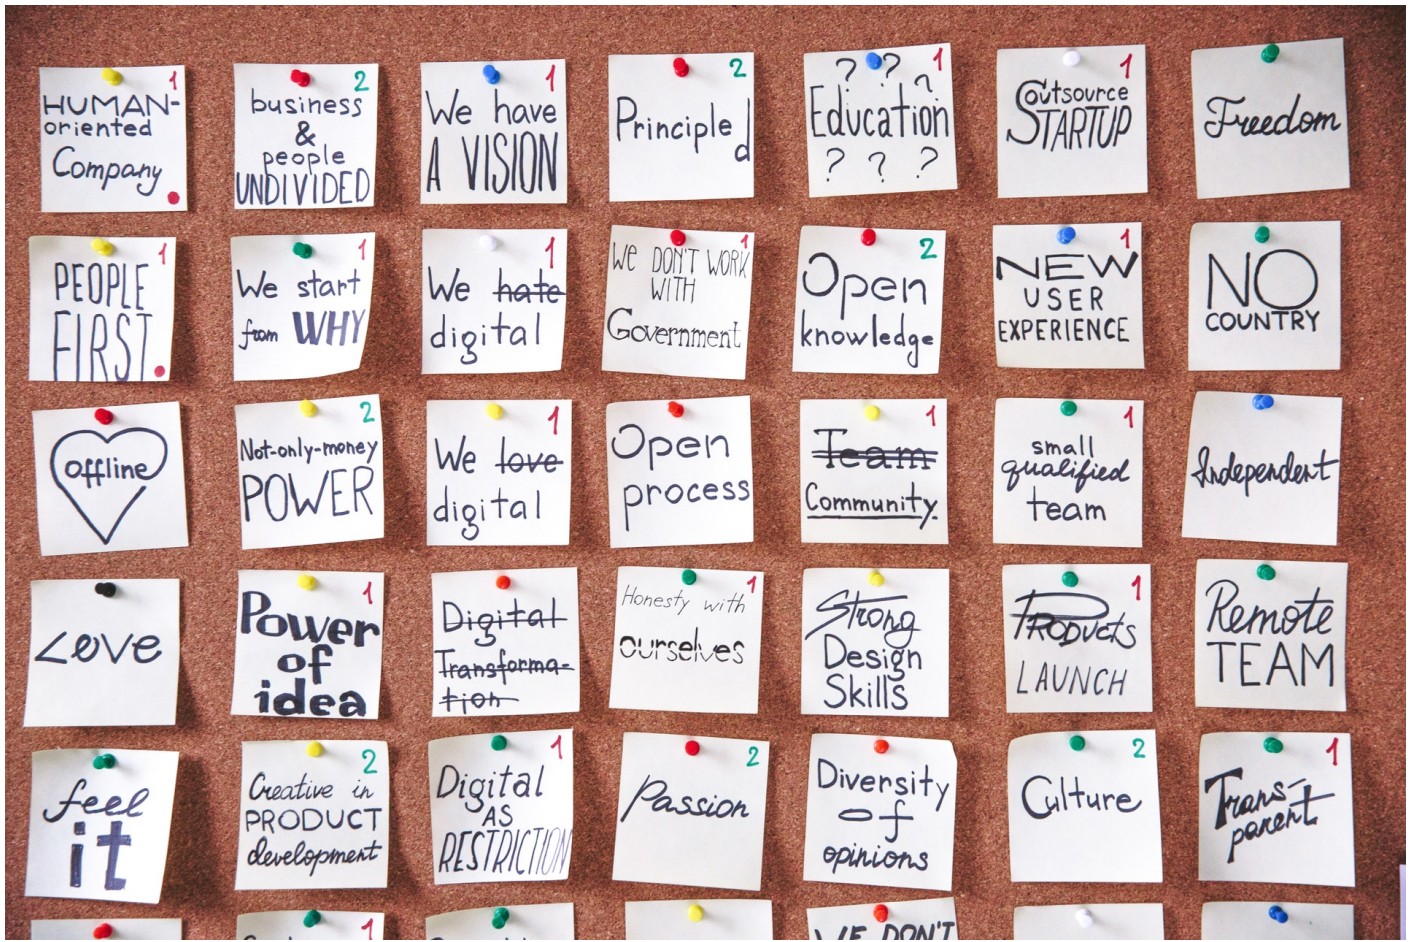 1
HUMAN-
oriented
Company
2
business
&
people
UNDIVIDED
1
We have
A VISION
2
Principle
d
1
? ? ?
Education
? ? ?
1
Outsource
STARTUP
Freedom
1
PEOPLE
FIRST.
1
We start
from WHY
1
We hate
digital
1
We DON'T WORK
WITH
Government
2
Open
knowledge
1
NEW
USER
EXPERIENCE
NO
COUNTRY
offline
2
Not-only-money
POWER
1
We love
digital
Open
process
1
Team
Community.
1
small
qualified
team
Independent
Love
1
Power
of
idea
Digital
Transforma-
tion
1
Honesty with
ourselves
Strong
Design
Skills
1
Products
LAUNCH
Remote
TEAM
feel
it
2
Creative in
PRODUCT
development
1
Digital
AS
RESTRICTION
2
Passion
Diversity
of
opinions
2
Culture
1
Trans-
parent
1
WE DON'T